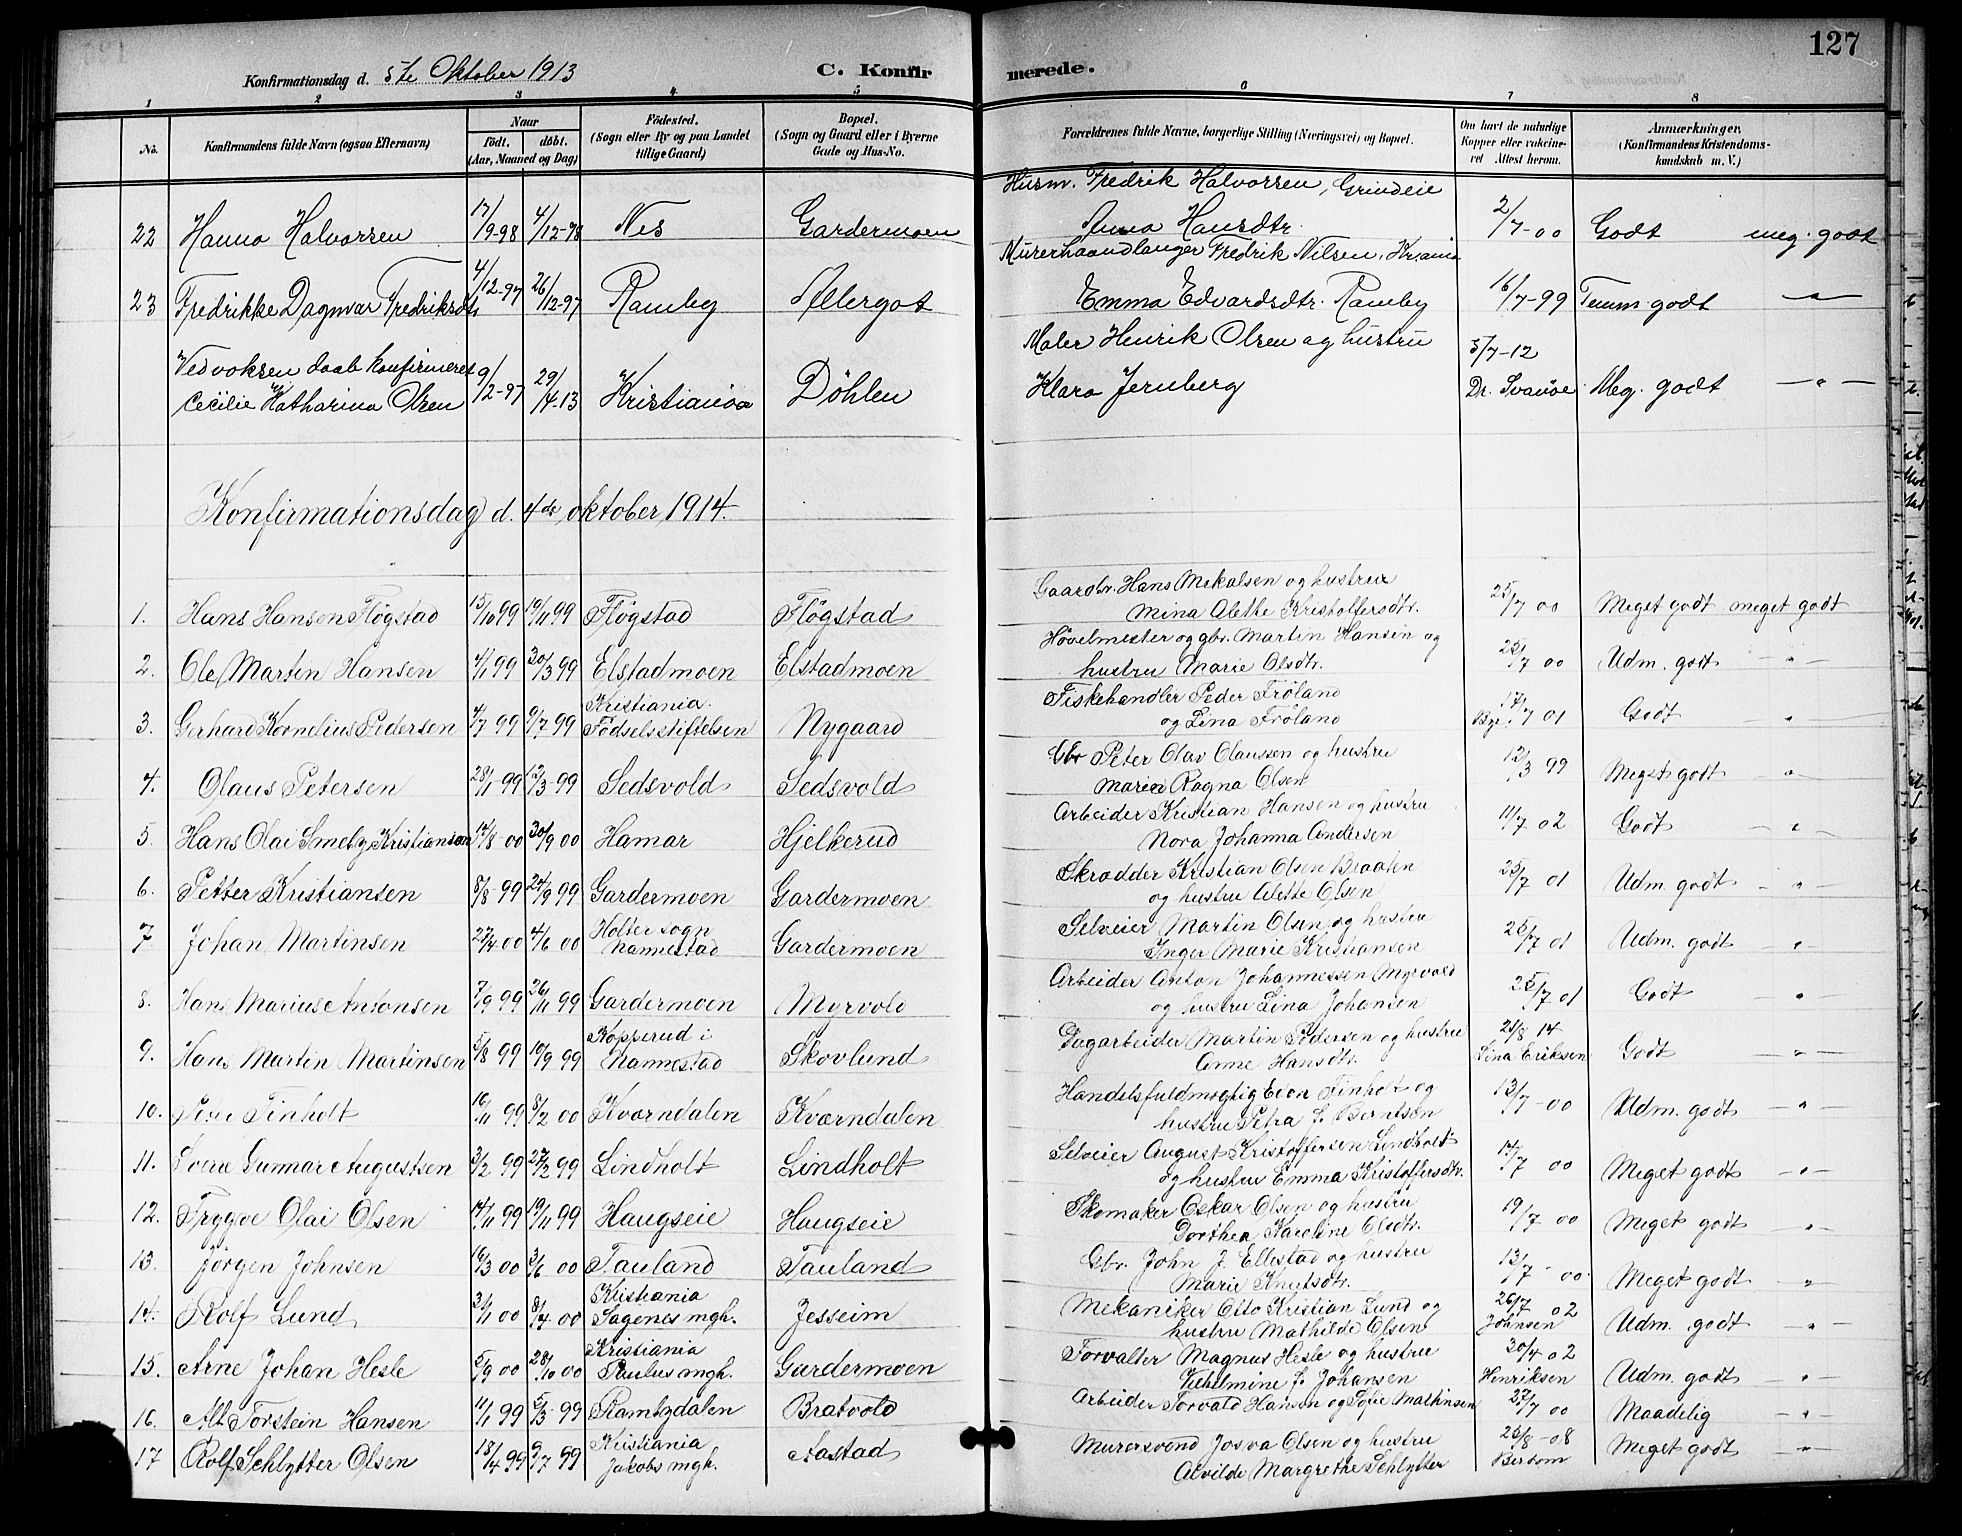 127
Konfirmationsdag d. 5te Oktober 1913 C. Konfirmerede.
1 2 3 4 5 6 7 8
No. Konfirmandens fulde Navn (ogsaa Efternavn) Naar født. døbt. (Aar, Maaned og Dag) Fødested. (Sogn eller By og paa Landet tillige Gaard) Bopæl. (Sogn og Gaard eller i Byerne Gade og Hus-No. Forældrenes fulde Navne, borgerlige Stilling (Næringsvei) og Bopæl. Om havt de naturlige Kopper eller vakcineret. Attest herom. Anmærkninger. (Konfirmandens Kristendomskundskab m. V.)
Husm. Fredrik Halvorsen, Grindeie
22 Hanna Halvorsen 17/9-98 4/12-98 Nes Gardermoen Anna Hansdtr. 2/7-00 Godt meg. godt
Murerhaandlanger Fredrik Nilsen, Kr.ania
23 Fredrikke Dagmar Fredriksdtr 4/12-97 26/12-97 Ramby Allergot Emma Edvardsdtr. Ramby 16/7-99 Temm. godt — " —
Ved voksen daab konfirmeret Maler Henrik Olsen og hustru 5/7-12
Cecilie Katharina Olsen 9/12-97 29/4-13 Kristiania Döhlen Klara Jernberg Dr. Svavöe Meg. godt — " —
Konfirmationsdag d. 4de oktober 1914.
Gaardbr. Hans Mikalsen og hustru
1. Hans Hansen Flögstad 15/10 99 19/11 99 Flögstad Flögstad Mina Alette Kristoffersdtr. 25/7 00 Meget godt meget godt
Hövelmester og gbr. Martin Hansen og
2. Ole Martin Hansen 4/1 99 30/3 99 Elstadmoen Elstadmoen hustru Marie Olsdtr. 25/7 00 Udm. godt — " —
Kristiania. Fiskehandler Peder Fröland 17/7 01
3. Gerhard Kornelius Pedersen 4/7 99 9/7 99 Födselsstiftelsen Nygaard og Lina Fröland Godt "
Gbr Peter Olav Olaussen og hustru
4. Olaus Petersen 28/1 99 12/3 99 Sedsvold Sedsvold Maren Ragna Olsen 12/3 99 Meget godt "
Arbeider Kristian Hansen og hustru
5. Hans Olai Smeby Kristiansen 14/8 00 30/9 00 Hamar Hjelkerud Nora Johanna Andersen 11/7 02 Godt — " —
Skrædder Kristian Olsen Braaten
6. Petter Kristiansen 8/8 99 24/9 99 Gardermoen Gardermoen og hustru Alette Olsen 25/7 01 Udm. godt — " —
Holter sogn Selveier Martin Olsen og hustru
7 Johan Martinsen 27/4 00 4/6 00 Nannestad Gardermoen Inger Marie Kristiansen 25/7 01 Udm. godt "
Arbeider Anton Johannessen Myrvold
8. Hans Marius Antonsen 7/9 99 26/11 99 Gardermoen Myrvold og hustru Lina Johansen 25/7 01 Godt "
Kopperud i Dagarbeider Martin Pedersen og hustru 25/8 14
9. Hans Martin Martinsen 5/8 99 10/9 99 Nannestad Skovlund Anne Hansdtr. Lina Eriksen Godt — " —
Handelsfuldmægtig Even Finholt og
10. Finholt 16/11 99 8/2 00 Kværndalen Kværndalen hustru Petra J. Berntsen 13/7-00 Udm. godt — " —
Selveier August Kristoffersen Lindholt
11. Sverre Gunnar Augustsen 3/2 99 27/2 99 Lindholt Lindholt og hustru Emma Kristoffersdtr. 14/7 00 Meget godt — " —
Skomaker Oskar Olsen og hustru
12. Trygve Olai Olsen 14/11 99 19/11 99 Haugseie Haugseie Dorthea Karoline Olsdtr. 19/7 00 Meget godt "
Gbr. John J. Ellestad og hustru
13. Jörgen Johnsen 16/3 00 3/6 00 Tauland Tauland Marie Knutsdtr. 13/7-00 Meget godt "
Kristiania Mekaniker Otto Kristian Lund og 26/7 02
14. Rolf Lund 3/1 00 8/4 00 Sagenes mgh. Jesseim hustru Mathilde Olsen Johnsen Udm. godt — " —
Kristiania Forvalter Magnus Hesle og hustru 30/4 02
15. Arne Johan Hesle 5/9 00 28/10 00 Paulus mgh. Gardermoen Vilhelmine J. Johansen Henriksen Udm. godt "
16. Alf Torstein Hansen 11/1 99 5/3-99 Rambydalen Bratvold Arbeider Torvald Hansen og Sofie Mathinsen 27/7 00 Maadelig — " —
Kristiania Murersvend Josva Olsen og hustru 25/8-08
17 Rolf Schlytter Olsen 18/4 99 9/7 99 Jakobs mgh. Aastad Alvilde Margrethe Schlytter Meget godt "